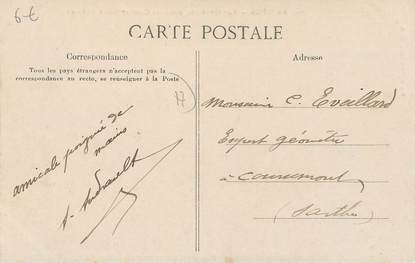 6-€
CARTE POSTALE
Correspondance
Tous les pays étrangers n'acceptent pas la
correspondance au recto, se renseigner à la Poste
17
amicale poignée de
mains
Adresse
Monsieur C. Eveillard
Expert géomètre
à
(Sarthe)